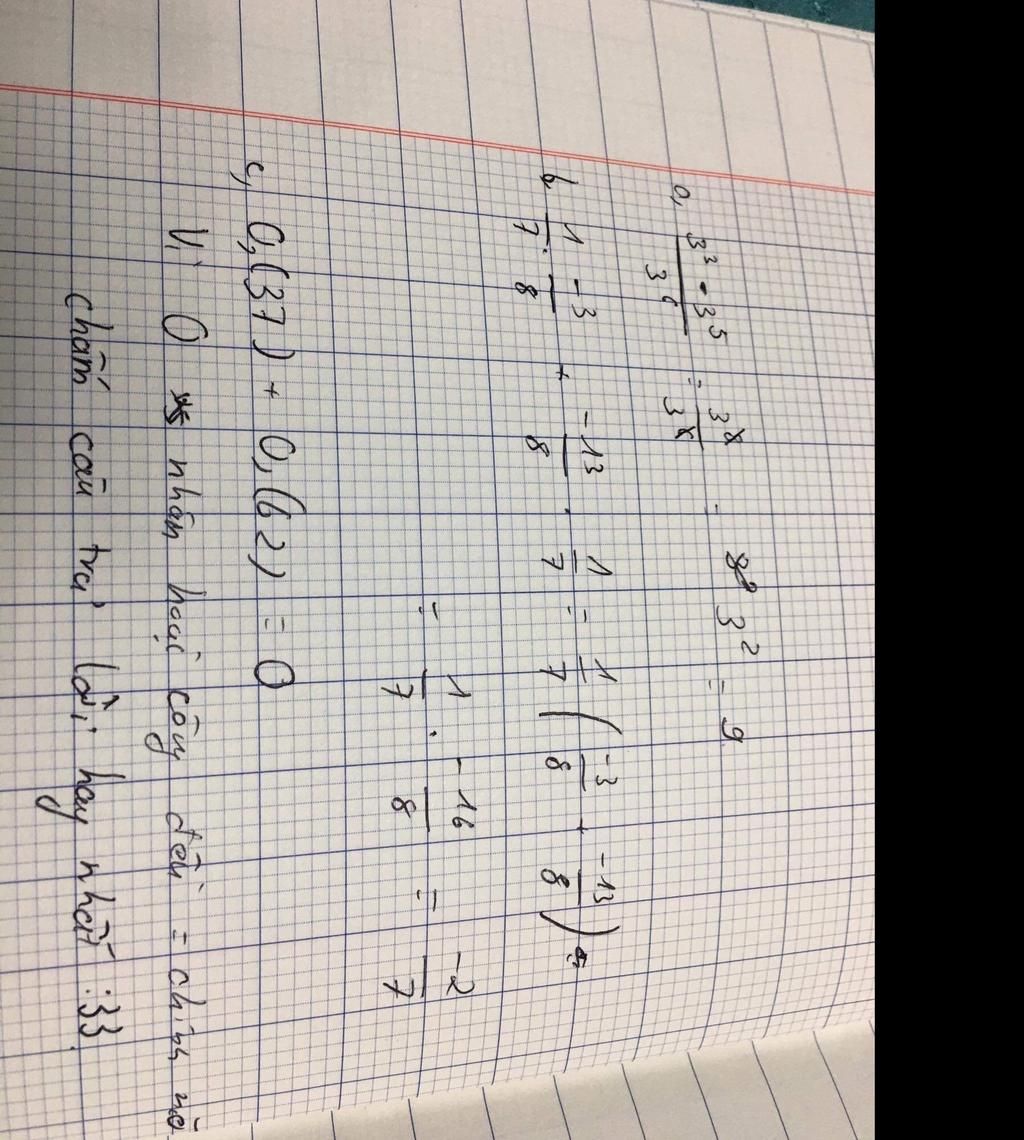 a, 3³ . 3⁵ / 3⁶ = 3⁸ / 3⁶ = 3² = 9
b, 1/7 . -3/8 + -13/8 . 1/7 = 1/7 ( -3/8 + -13/8 )
= 1/7 . -16/8 = -2/7
c, 0,(37) + 0,(62) = 0
Vì 0 nhân hoặc cộng đều = chính nó
chấm câu trả lời hay nhất :33